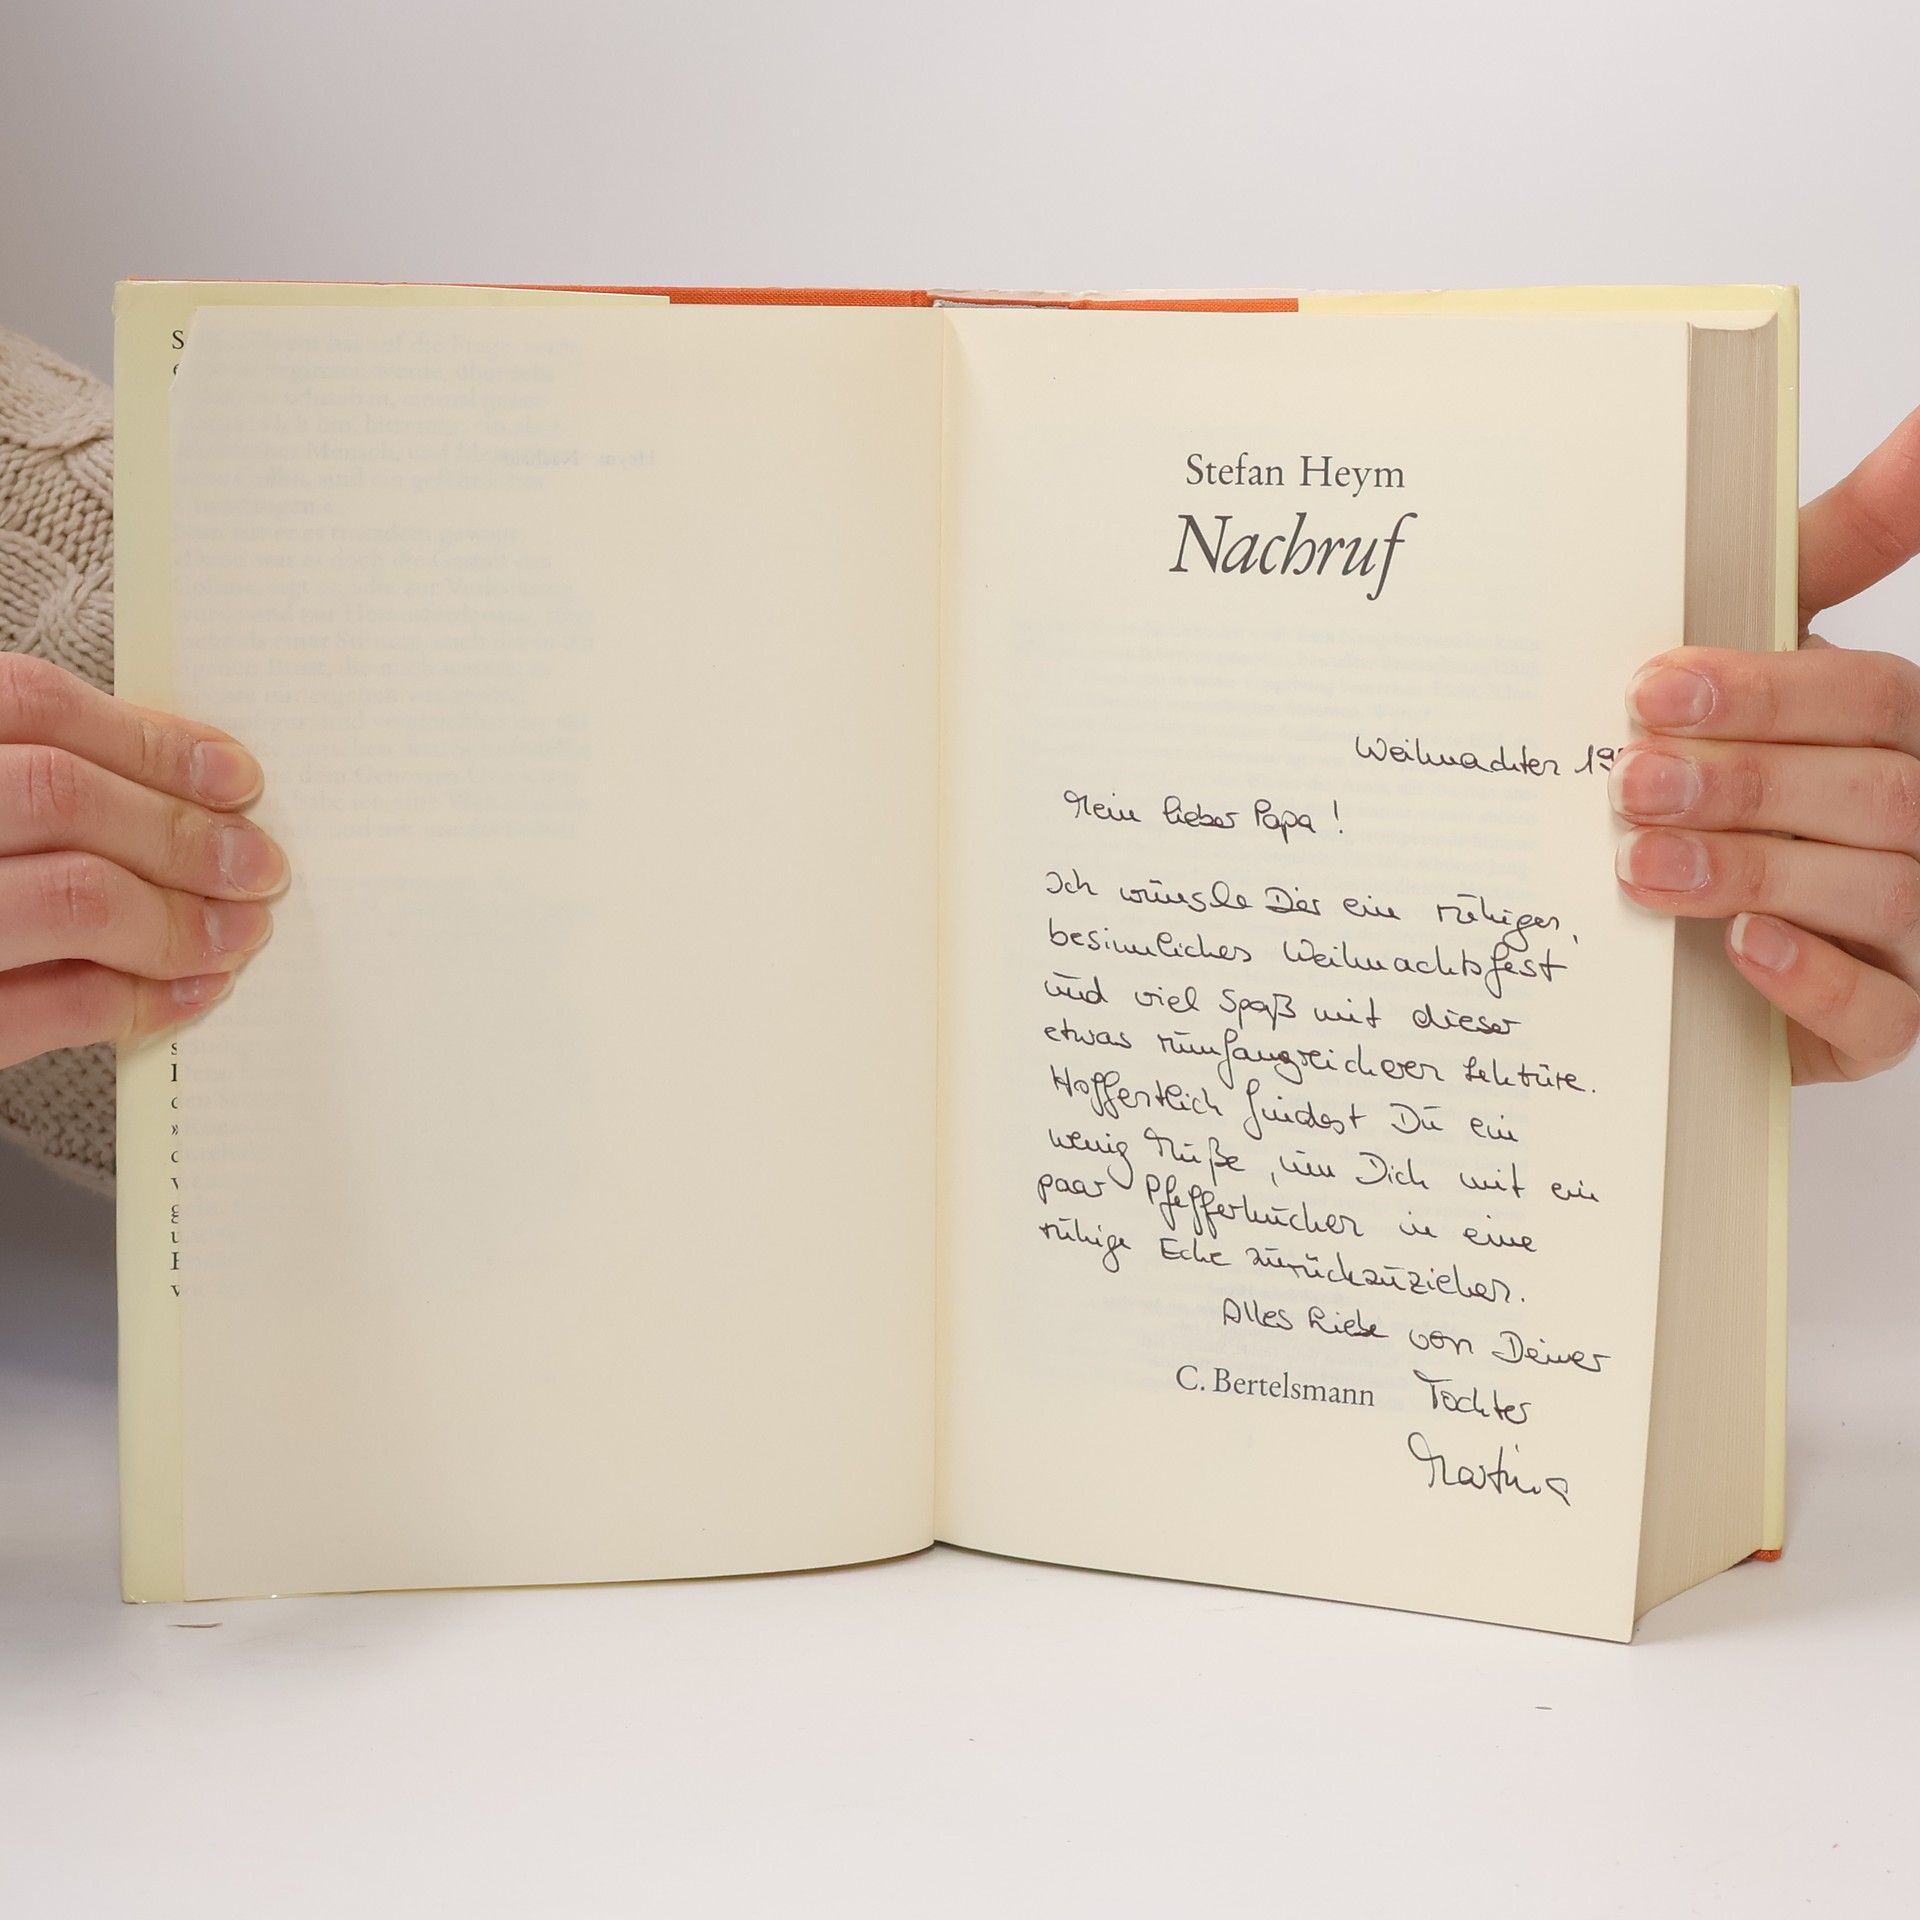 Stefan Heym
Nachruf
Weihnachten 19
Mein lieber Papa!
Ich wünsche Dir ein ruhiges,
besinnliches Weihnachtsfest
und viel Spaß mit dieser
etwas umfangreicheren Lektüre.
Hoffentlich findest Du ein
wenig Muße, um Dich mit ein
paar Pfefferkuchen in eine
ruhige Ecke zurückzuziehen.
Alles Liebe von Deiner
C. Bertelsmann Tochter
Martina